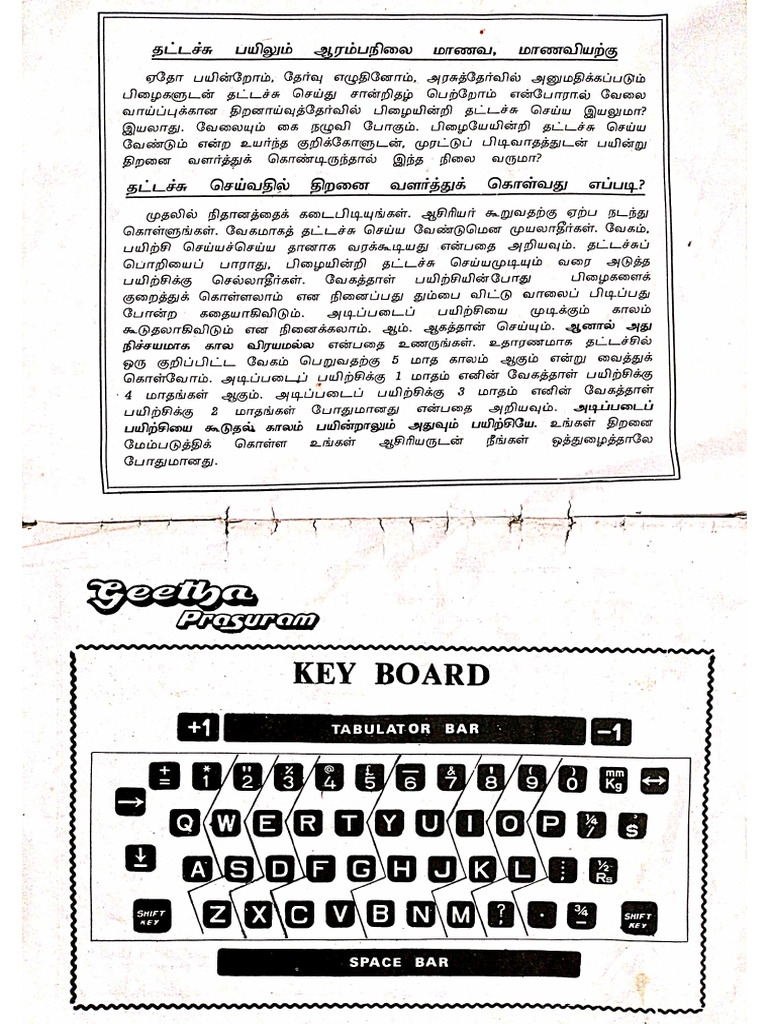 தட்டச்சு பயிலும் ஆரம்பநிலை மாணவ, மாணவியற்கு
ஏதோ பயின்றோம், தேர்வு எழுதினோம், அரசுத்தேர்வில் அனுமதிக்கப்படும்
பிழைகளுடன் தட்டச்சு செய்து சான்றிதழ் பெற்றோம் என்போரால் வேலை
வாய்ப்புக்கான திறனாய்வுத்தேர்வில் பிழையின்றி தட்டச்சு செய்ய இயலுமா?
இயலாது. வேலையும் கை நழுவி போகும். பிழையேயின்றி தட்டச்சு செய்ய
வேண்டும் என்ற உயர்ந்த குறிக்கோளுடன், முரட்டுப் பிடிவாதத்துடன் பயின்று
திறனை வளர்த்துக் கொண்டிருந்தால் இந்த நிலை வருமா?
தட்டச்சு செய்வதில் திறனை வளர்த்துக் கொள்வது எப்படி?
முதலில் நிதானத்தைக் கடைபிடியுங்கள். ஆசிரியர் கூறுவதற்கு ஏற்ப நடந்து
கொள்ளுங்கள். வேகமாகத் தட்டச்சு செய்ய வேண்டுமென முயலாதீர்கள். வேகம்,
பயிற்சி செய்யச்செய்ய தானாக வரக்கூடியது என்பதை அறியவும். தட்டச்சுப்
பொறியைப் பாராது, பிழையின்றி தட்டச்சு செய்யமுடியும் வரை அடுத்த
பயிற்சிக்கு செல்லாதீர்கள். வேகத்தாள் பயிற்சியின்போது பிழைகளைக்
குறைத்துக் கொள்ளலாம் என நினைப்பது தும்பை விட்டு வாலைப் பிடிப்பது
போன்ற கதையாகிவிடும். அடிப்படைப் பயிற்சியை முடிக்கும் காலம்
கூடுதலாகிவிடும் என நினைக்கலாம். ஆம். ஆகத்தான் செய்யும். ஆனால் அது
நிச்சயமாக கால விரயமல்ல என்பதை உணருங்கள். உதாரணமாக தட்டச்சில்
ஒரு குறிப்பிட்ட வேகம் பெறுவதற்கு 5 மாத காலம் ஆகும் என்று வைத்துக்
கொள்வோம். அடிப்படைப் பயிற்சிக்கு 1 மாதம் எனின் வேகத்தாள் பயிற்சிக்கு
4 மாதங்கள் ஆகும். அடிப்படைப் பயிற்சிக்கு 3 மாதம் எனின் வேகத்தாள்
பயிற்சிக்கு 2 மாதங்கள் போதுமானது என்பதை அறியவும். அடிப்படைப்
பயிற்சியை கூடுதல் காலம் பயின்றாலும் அதுவும் பயிற்சியே. உங்கள் திறனை
மேம்படுத்திக் கொள்ள உங்கள் ஆசிரியருடன் நீங்கள் ஒத்துழைத்தாலே
போதுமானது.
Geetha
Prasuram
KEY BOARD
+1 TABULATOR BAR -1
+ * " % @ £ — & ' ( ) mm
= 1 2 3 4 5 6 7 8 9 0 Kg ↔
→ Q W E R T Y U I O P ¼ /
A S D F G H J K L ; : ½ Rs
SHIFT KEY Z X C V B N M ? , . ¾ – SHIFT KEY
SPACE BAR